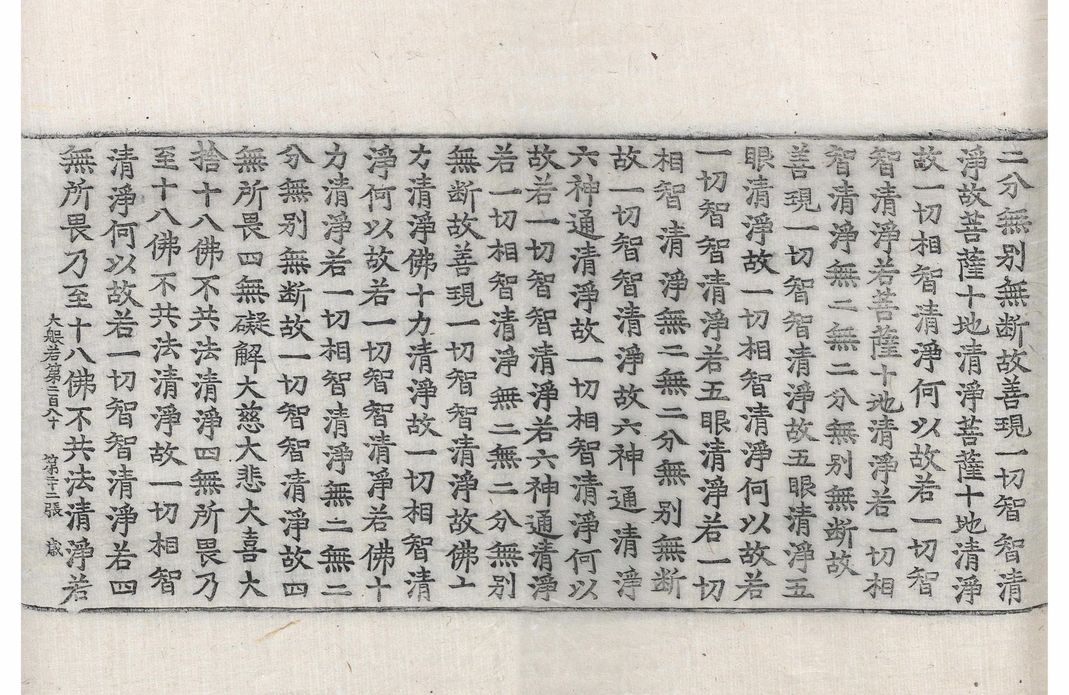 二分無別無斷故善現一切智智清
淨故菩薩十地清淨菩薩十地清淨
故一切相智清淨何以故若一切智
智清淨若菩薩十地清淨若一切相
智清淨無二無二分無別無斷故
善現一切智智清淨故五眼清淨五
眼清淨故一切相智清淨何以故若
一切智智清淨若五眼清淨若一切
相智清淨無二無二分無別無斷
故一切智智清淨故六神通清淨
六神通清淨故一切相智清淨何以
故若一切智智清淨若六神通清淨
若一切相智清淨無二無二分無別
無斷故善現一切智智清淨故佛十
力清淨佛十力清淨故一切相智清
淨何以故若一切智智清淨若佛十
力清淨若一切相智清淨無二無二
分無別無斷故一切智智清淨故四
無所畏四無礙解大慈大悲大喜大
捨十八佛不共法清淨四無所畏乃
至十八佛不共法清淨故一切相智
清淨何以故若一切智智清淨若四
無所畏乃至十八佛不共法清淨若
大般若第二百八十 第二十二張 歲